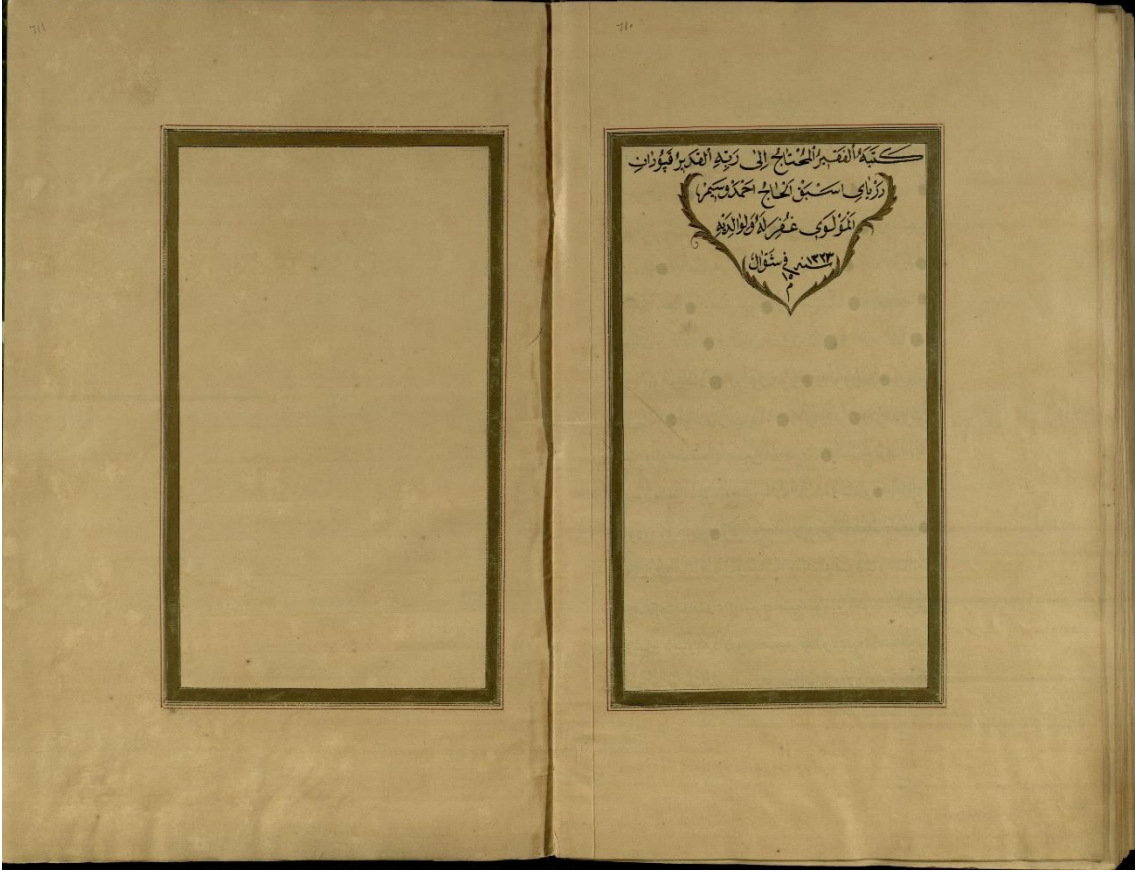 ٦١٠
كَتَبَهُ الْفَقِيرُ الْمُحْتَاجُ اِلٰى رَبِّهِ الْقَدِيرِ قَپُودَانِ
دَرْيَايِ اَسْبَقْ الْحَاجْ اَحْمَدْ وَسِيمْ
الْمَوْلَوِي غُفِرَلَهُ وَلِوَالِدَيْهِ
فِي شَوَّالْ سنه ١٣٢٣
م
٦١١